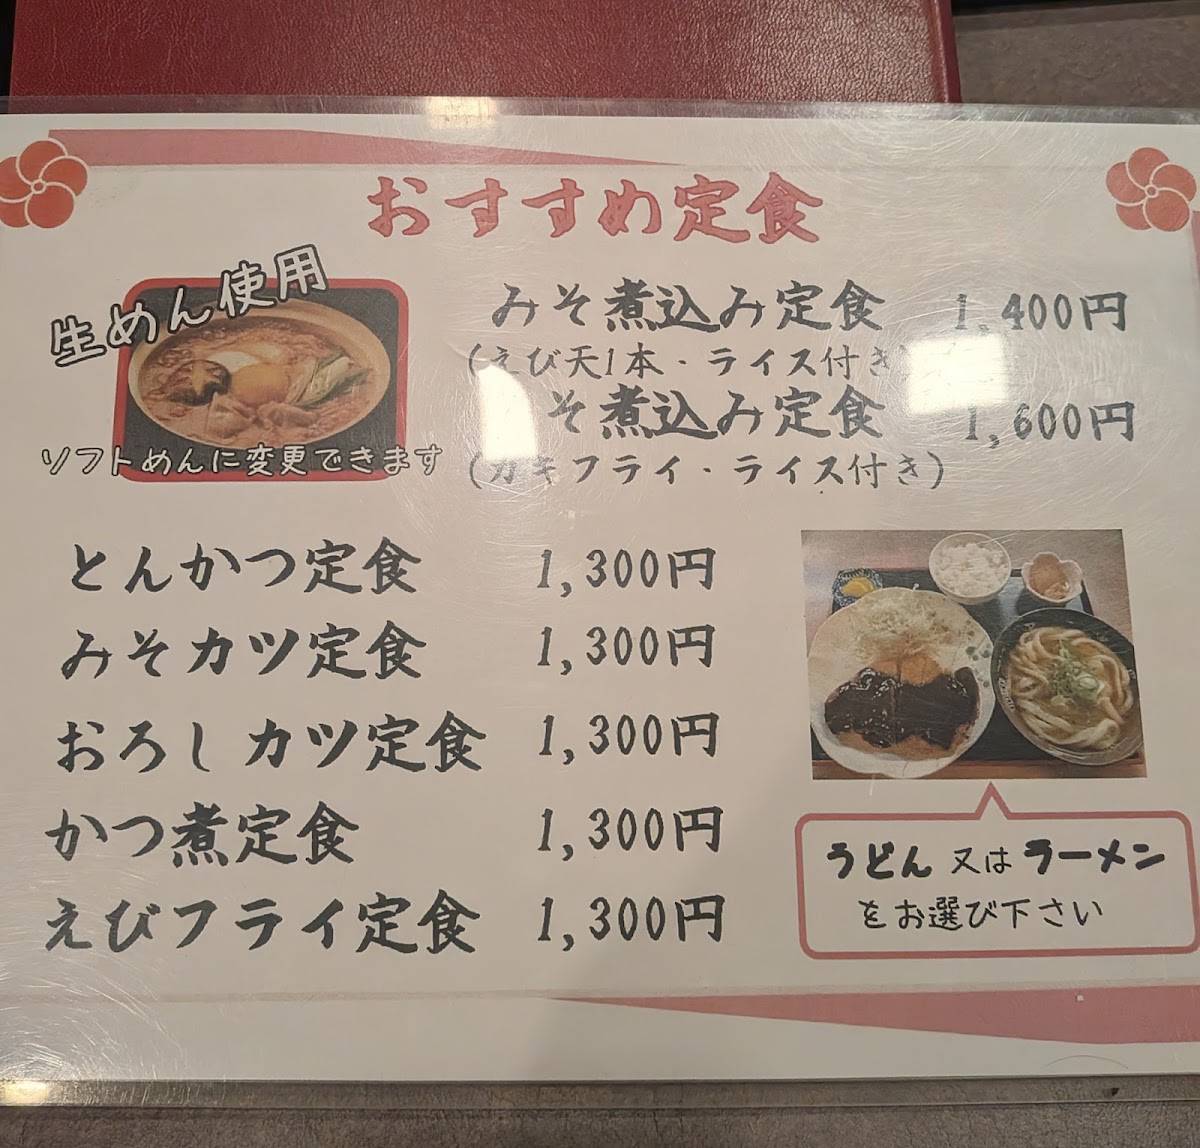 おすすめ定食
生めん使用
ソフトめんに変更できます
みそ煮込み定食 1,400円
(えび天1本・ライス付き)
そ煮込み定食 1,600円
(カキフライ・ライス付き)
とんかつ定食 1,300円
みそカツ定食 1,300円
おろしカツ定食 1,300円
かつ煮定食 1,300円
えびフライ定食 1,300円
うどん 又は ラーメン
をお選び下さい